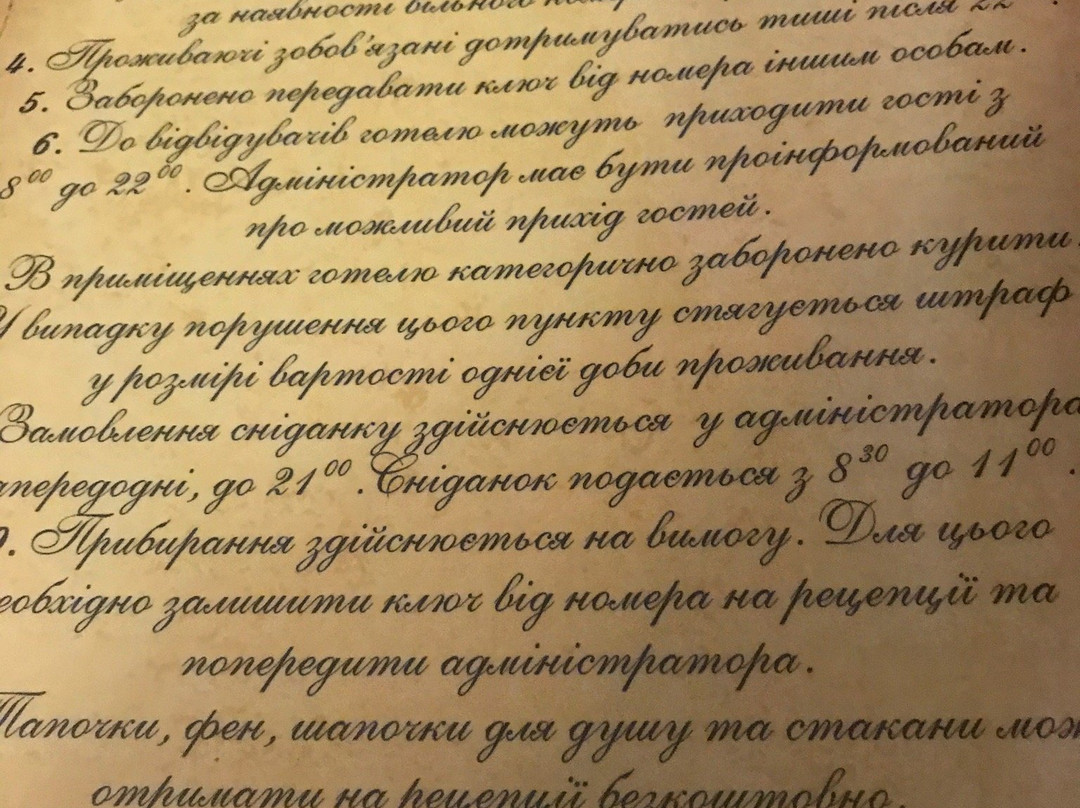 за наявності вільного
4. Проживаючі зобов'язані дотримуватись тиші після 22
5. Заборонено передавати ключ від номера іншим особам.
6. До відвідувачів готелю можуть приходити гості з
8⁰⁰ до 22⁰⁰. Адміністратор має бути проінформований
про можливий прихід гостей.
В приміщеннях готелю категорично заборонено курити.
У випадку порушення цього пункту стягується штраф
у розмірі вартості однієї доби проживання.
Замовлення сніданку здійснюється у адміністратора
напередодні, до 21⁰⁰. Сніданок подається з 8³⁰ до 11⁰⁰.
9. Прибирання здійснюється на вимогу. Для цього
необхідно залишити ключ від номера на рецепції та
попередити адміністратора.
Тапочки, фен, шапочки для душу та стакани мож
отримати на рецепції безкоштовно.